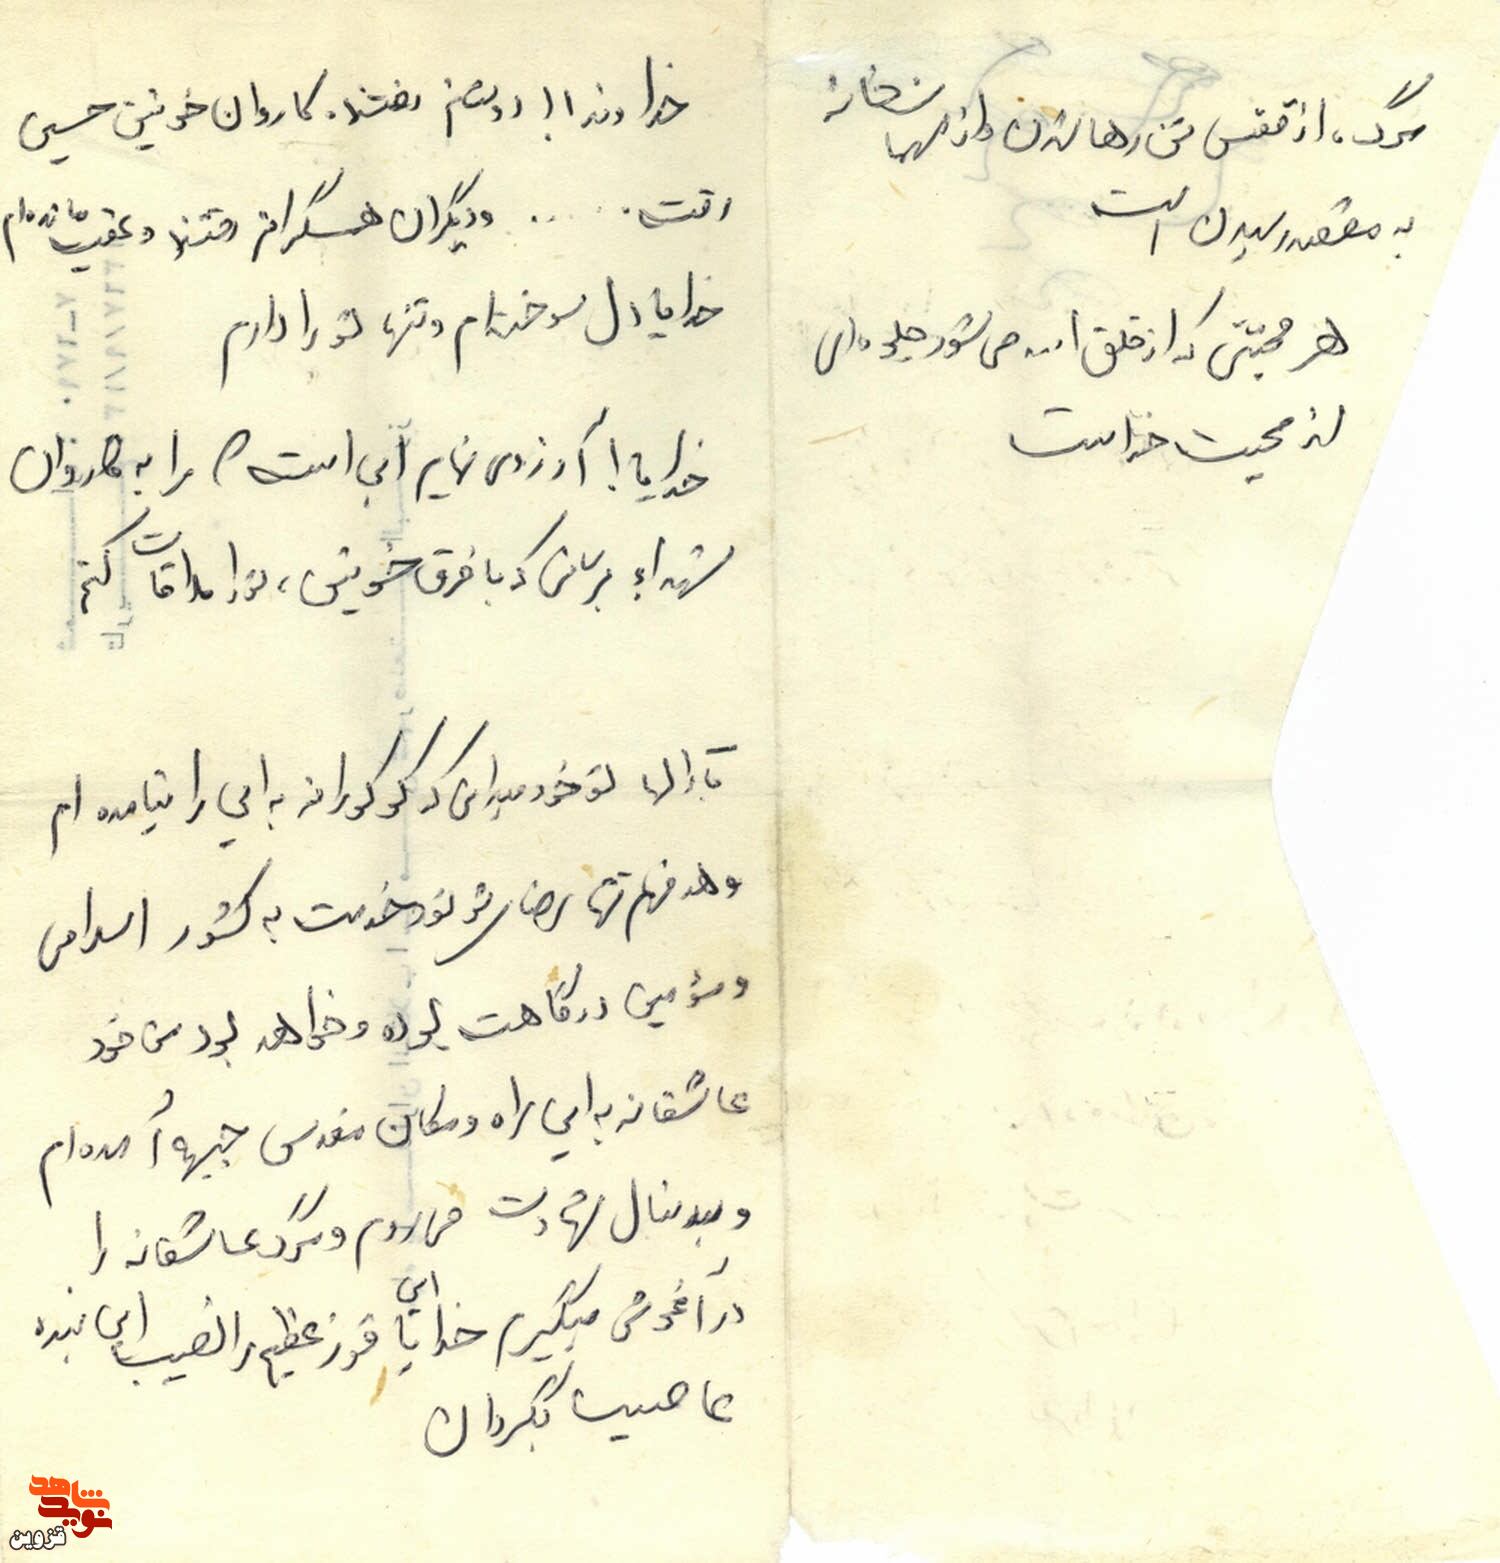 مرگ، از قفس تن رها شدن و از مهمانخانه
به مقصد رسیدن است
هر محبتی که از خلق الله می شود جلوه ای
از محبت خداست
خداوندا! دوستانم رفتند. کاروان خونین حسین
رفت ..... ودیگران همسنگرانم رفتند و عقب مانده ام
خدایا دل سوخته ام و تنها تو را دارم
خدایا! آرزوی نهایم این است که مرا به کاروان
شهداء برسانی که با فرق خونین، تو را ملاقات کنم
بارالها تو خود میدانی که کورکورانه به این راه نیامده ام
و هدفم تنها رضای تو و خدمت به کشور اسلامی
و مؤمنین درگاهت بوده و خواهد بود من خود
عاشقانه به این راه و مکان مقدس جبهه آمده ام
و بدنبال شهادت می روم و مرگ عاشقانه را
در آغوش میگیرم خدایا این فوز عظیم را نصیب این بنده
عاصیت بگردان
شاهد
نوید
قزوین